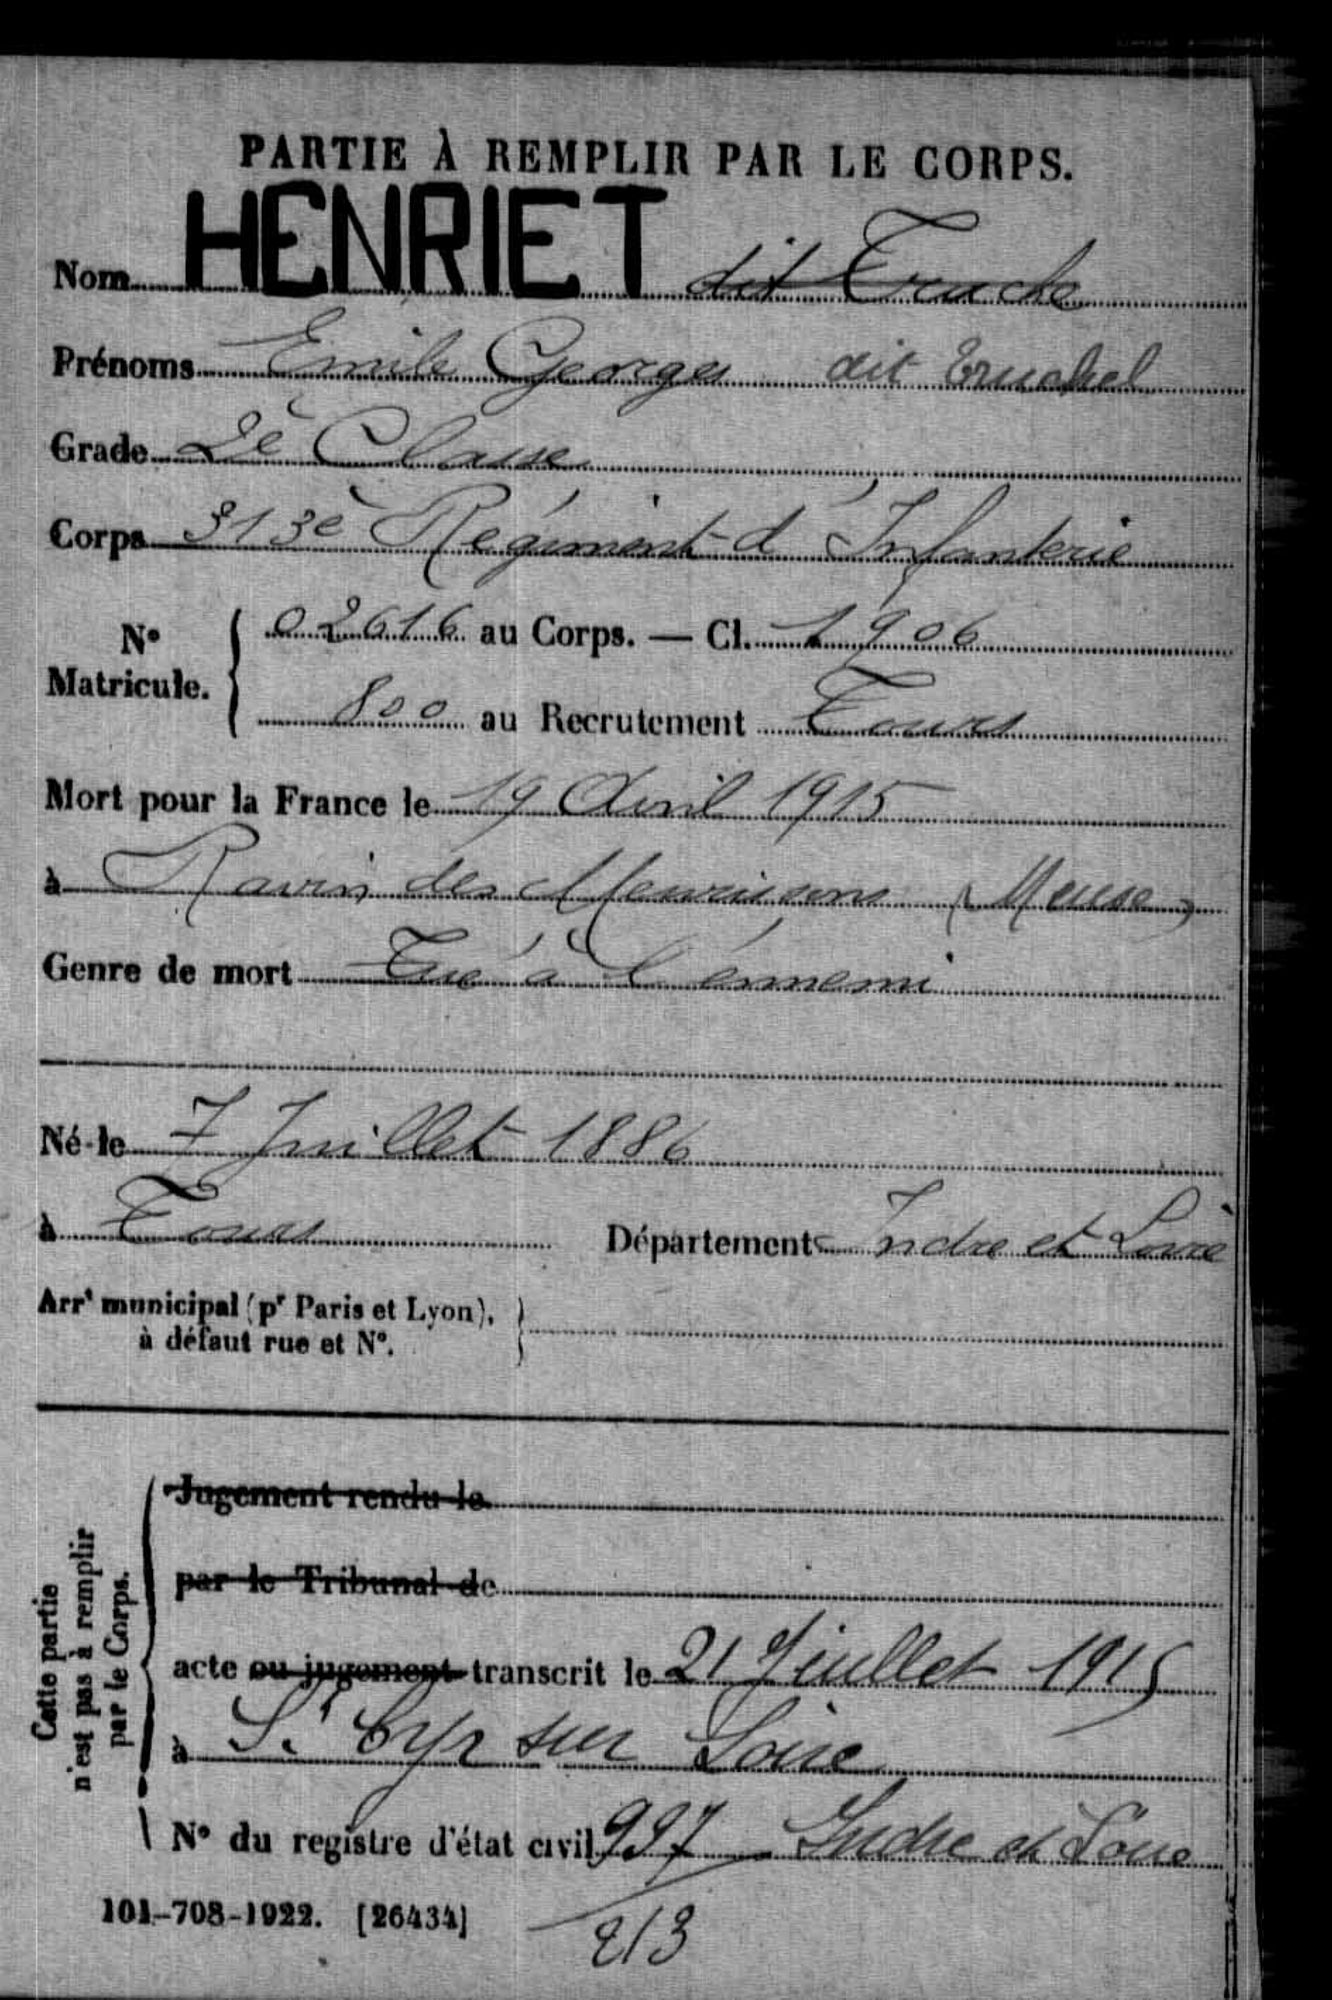 PARTIE À REMPLIR PAR LE CORPS.
Nom HENRIET dit Truche
Prénoms Emile Georges dit Truchel
Grade 2è Classe
Corps 313è Régiment d'Infanterie
N° Matricule. 02616 au Corps. — Cl. 1906
800 au Recrutement Tours
Mort pour la France le 19 Avril 1915
à Ravin des Meurissons (Meuse)
Genre de mort Tué à l'énnemi
Né le 7 Juillet 1886
à Tours Département Indre et Loire
Arrt municipal (pr Paris et Lyon), à défaut rue et N°.
Cette partie n'est pas à remplir par le Corps.
Jugement rendu le
par le Tribunal de
acte ou jugement transcrit le 21 Juillet 1915
à St Cyr sur Loire
N° du registre d'état civil 997 Indre et Loire
101-708-1922. [26434]
213